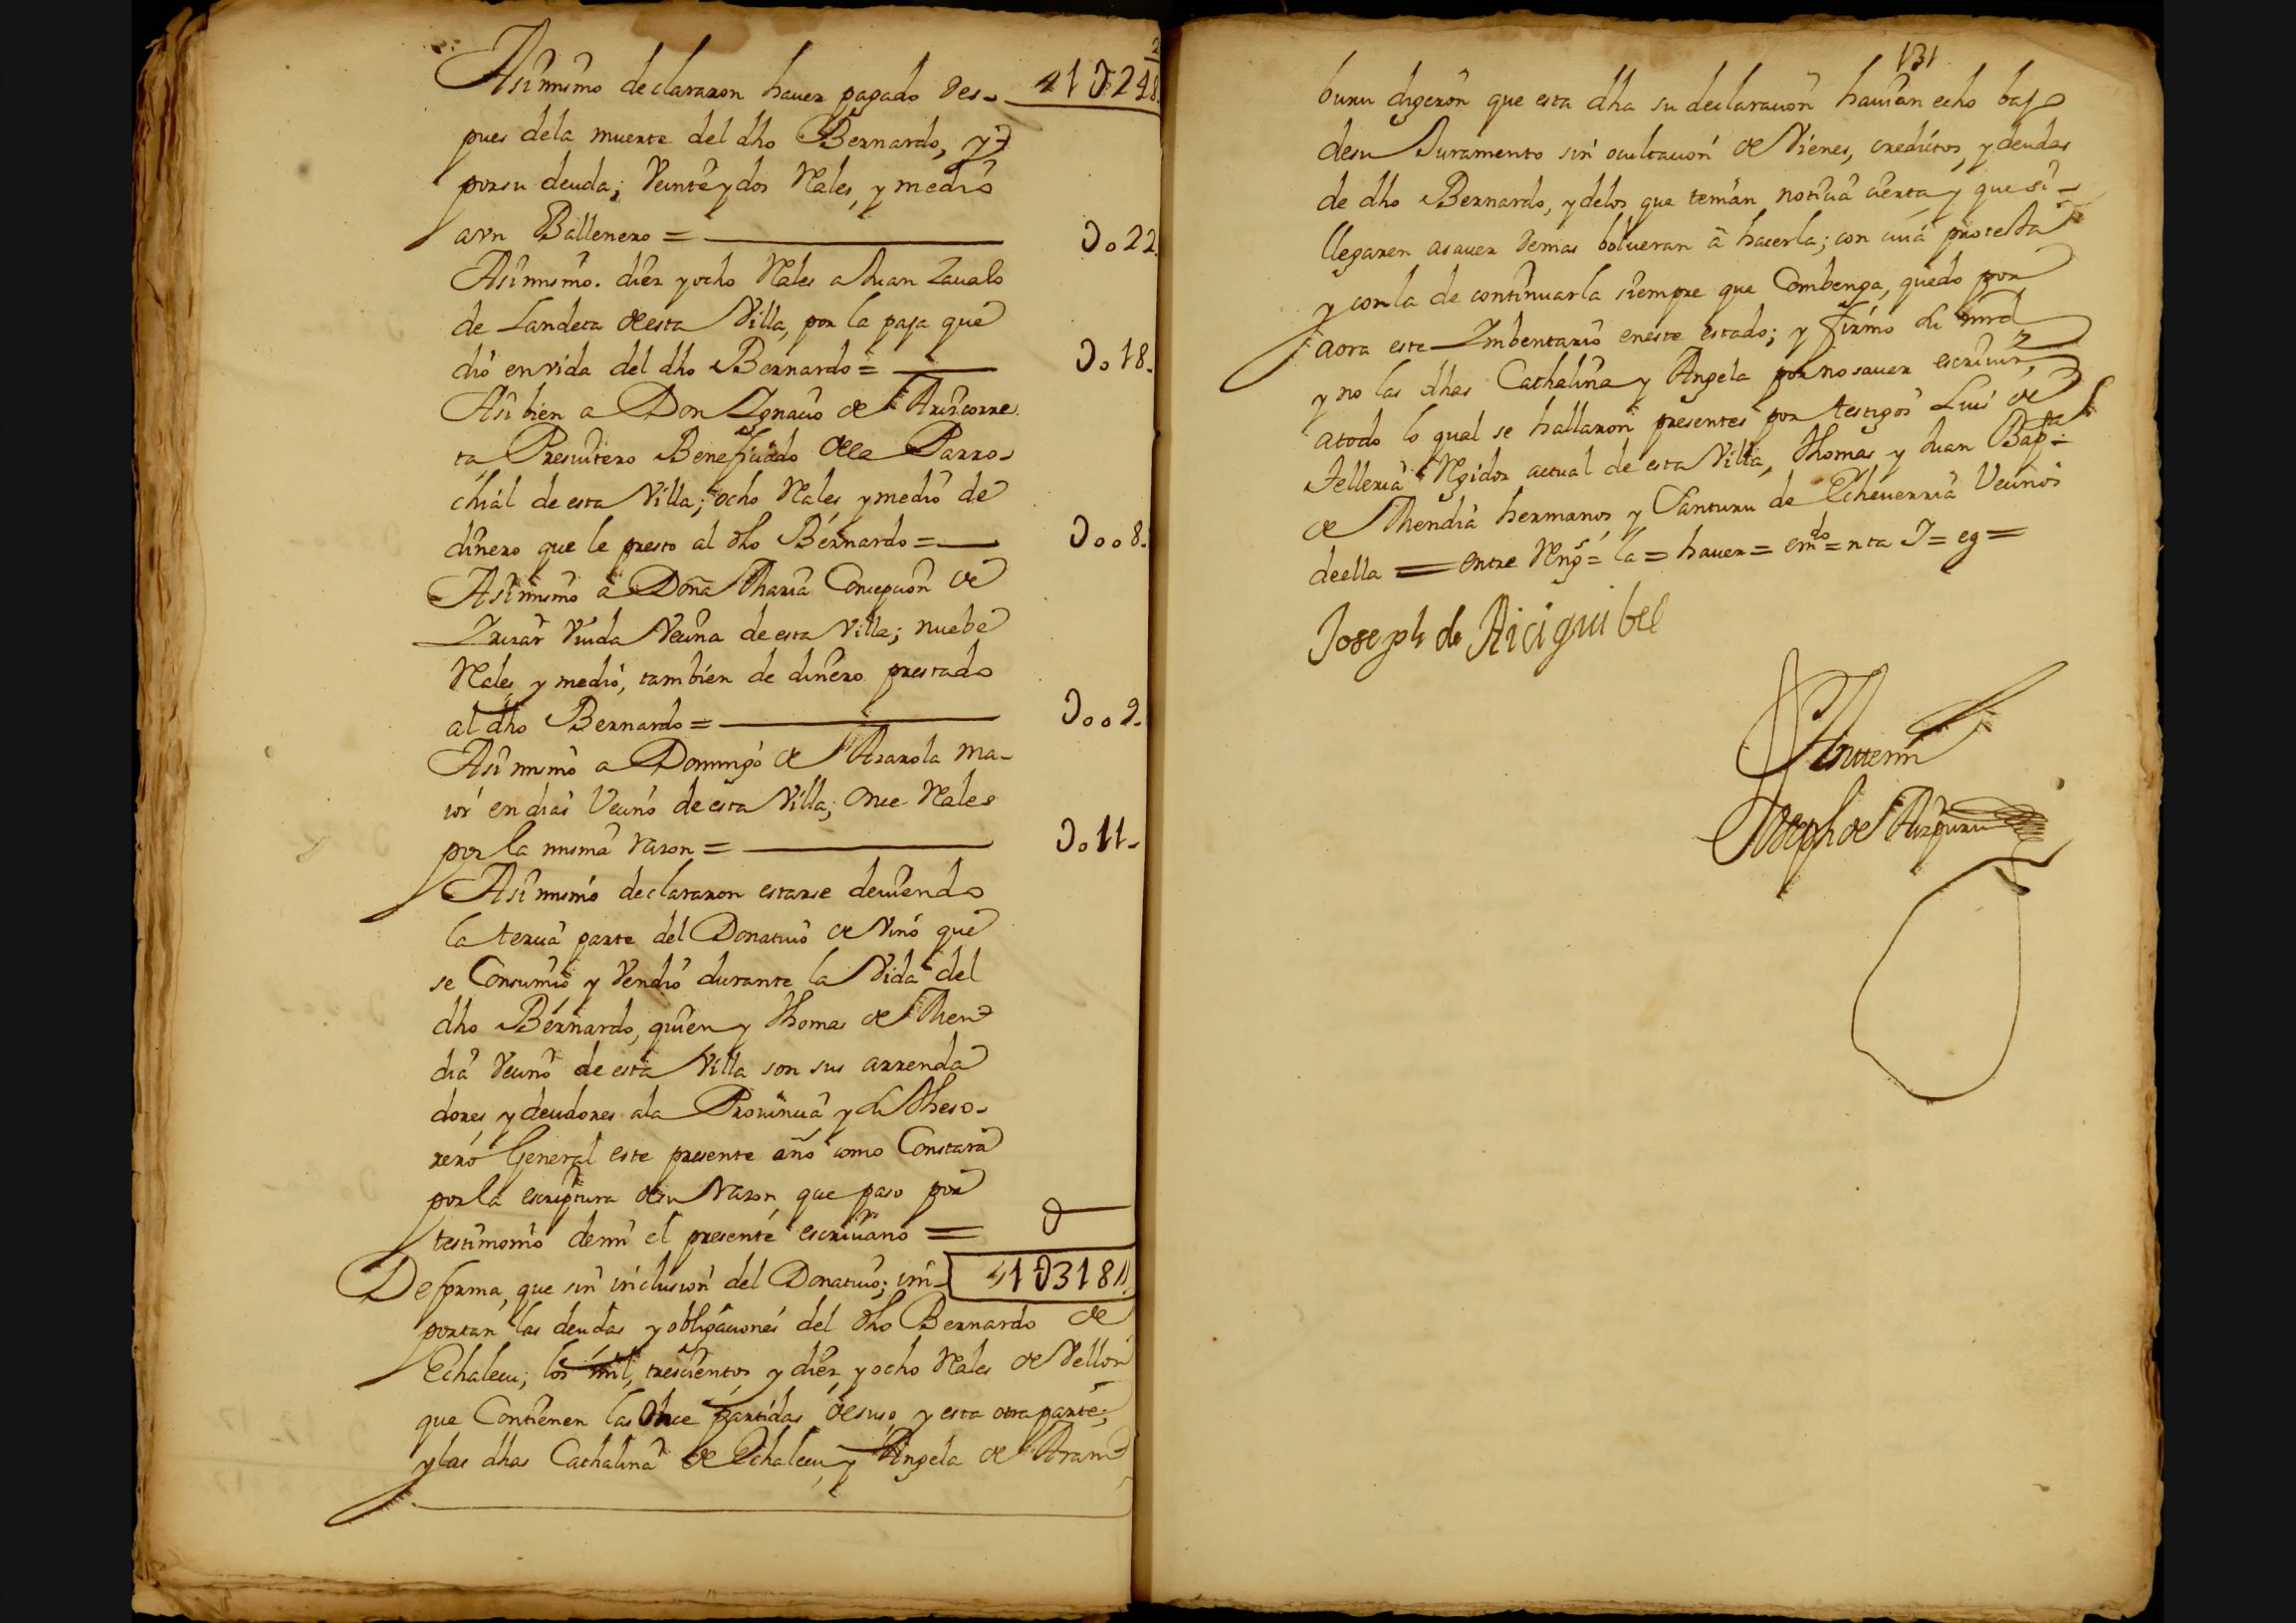 Asimismo declararon haver pagado des- 1U248
pues dela muerte del dho Bernardo, y
porsu deuda; veinte y dos Rales, y medio
aun Ballenero = U022
Asimismo diez y ocho Rales a Juan Zavalo
de Landeta de esta Villa, por la paja que
dió en vida del dho Bernardo = U018
Asi bien a Don Ignacio de Arizcorre
ta Presvitero Beneficiado dela Parro-
chial de esta Villa; ocho Rales, y medio de
dinero que le presto al dho Bernardo = U008
Asimismo a Doña Maria Concepcion de
Irizar Viuda Vecina de esta Villa; nuebe
Rales y medio, tambien de dinero prestado
al dho Bernardo = U009
Asimismo a Domingo de Ararola ma-
ior en dias Vecino de esta Villa; Once Rales
por la misma razon = U011
Asimismo declararon estarse deviendo
la tercia parte del Donativo de Vino que
se Consumio y Vendio durante la Vida del
dho Bernardo, quien y Thomas de Men
dia Vecino de esta Villa son sus arrenda
dores, y deudores ala Provincia y su Theso-
rero General este presente año como Constara
por la escriptura desu razon, que paso por
testimonio demi el presente escrivano = U
Deforma, que sin inclusion del Donativo; im- 1U318
portan las deudas y obligaciones del dho Bernardo de
Echalecu; los mil, trescientos y diez, y ocho Rales de Vellon
que Contienen las Once partidas desuso, y esta otra parte;
y las dhas Cathalina de Echalecu, y Angela de Aram
131
buru digeron que esta dha su declaracion havian echo bajo
desu Juramento sin ocultacion de Vienes, creditos, y deudas
de dho Bernardo, y delos que tenian noticia cierta y que si
llegaren asaver demas bolveran à hacerla; con cuia protesta
y con la de continuarla siempre que Combenga, quedo por
aora este Imbentario en este estado; y firmo
y no las dhas Cathalina y Angela por no saver escrivir,
atodo lo qual se hallaron presentes por testigos Luis de
Telleria Regidor actual de esta Villa, Thomas y Juan Bapta
de Mendia hermanos y Santuru de Echeverria Vecinos
deella = entre Rengs = la = haver = emdo = nta = eg =
Joseph de Aiciguibel
Antemi
Joseph de Aizpuru